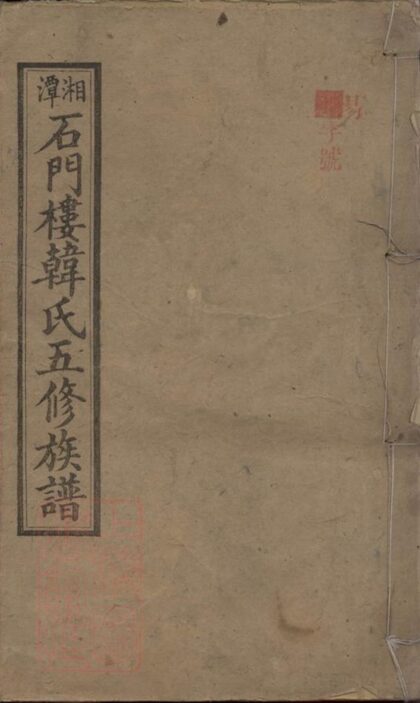 湘潭
石門樓韓氏五修族譜
字號